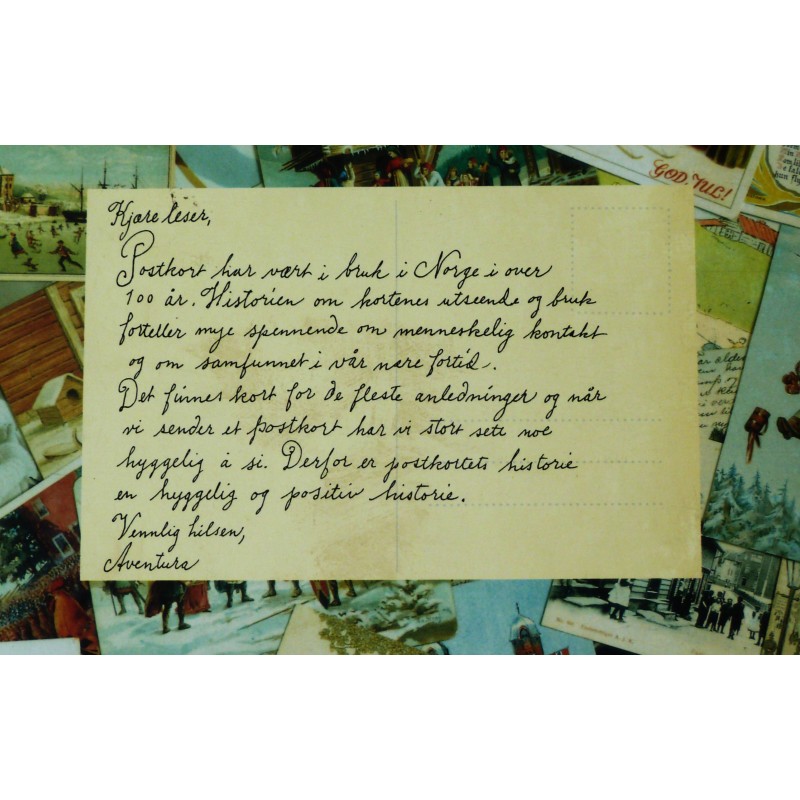 Kjære leser,
Postkort har vært i bruk i Norge i over
100 år. Historien om kortenes utseende og bruk
forteller mye spennende om menneskelig kontakt
og om samfunnet i vår nære fortid.
Det finnes kort for de fleste anledninger og når
vi sender et postkort har vi stort sett noe
hyggelig å si. Derfor er postkortets historie
en hyggelig og positiv historie.
Vennlig hilsen,
Aventura
GOD JUL!